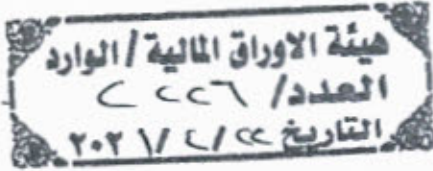 هيئة الاوراق المالية / الوارد
العدد / ٢٢٢٦
التاريخ ٢٢ / ٤ / ٢٠٢١